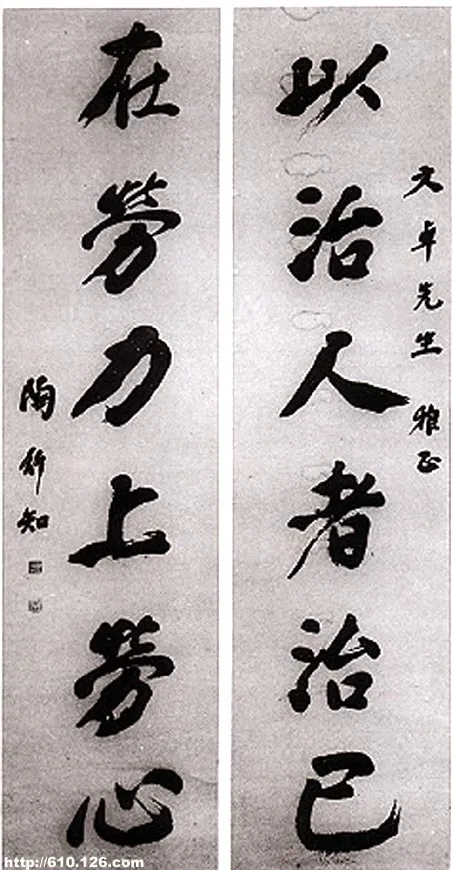 文卓先生 雅正
以治人者治己
在勞力上勞心
陶行知
http://610.126.com